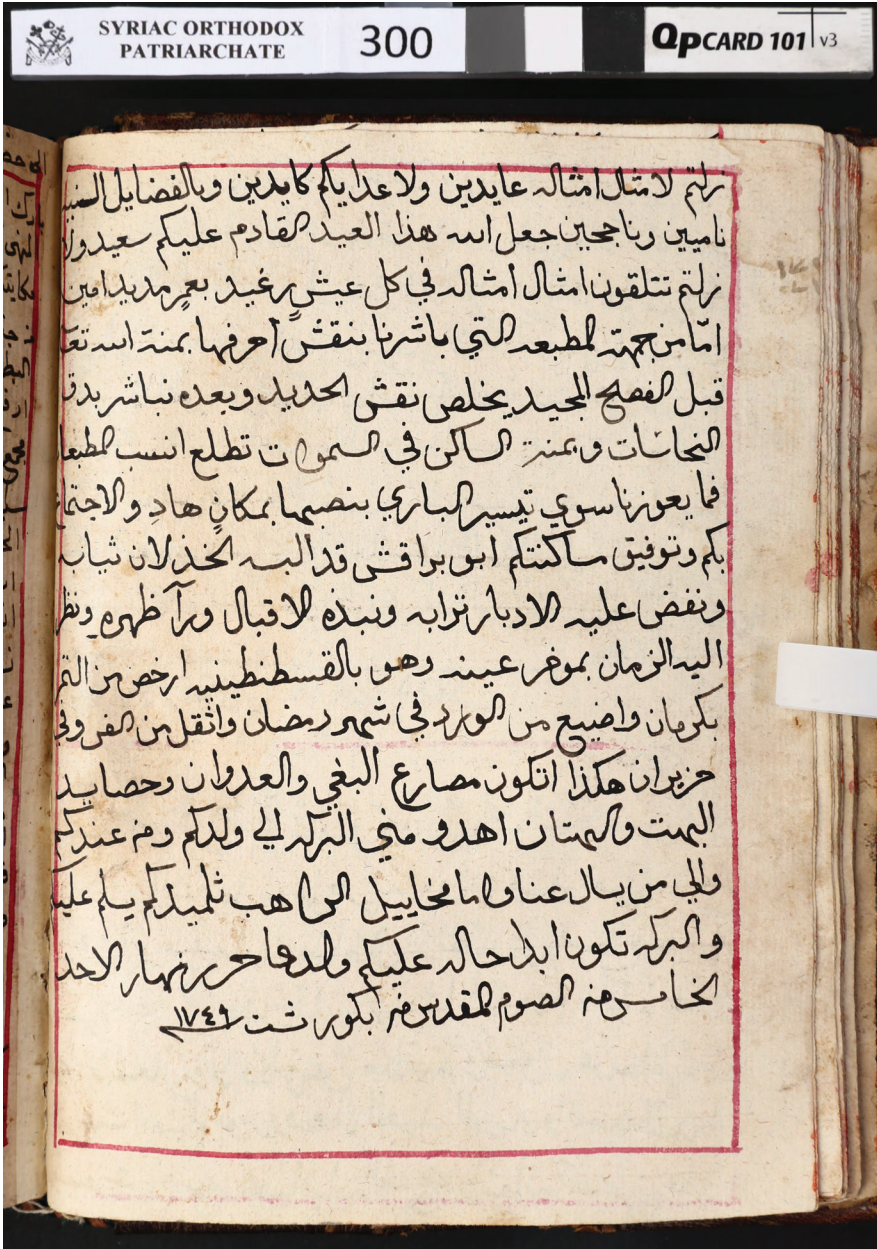 SYRIAC ORTHODOX
PATRIARCHATE
300
QPCARD 101 v3
زلتم لامثال امثاله عايدين ولاعدايكم كايدين وبالفضايل السنيه
ناميين وناجحين جعل الله هذا العيد القادم عليكم سعيد ولا
زلتم تتلقون امثال امثاله في كل عيشٍ رغيد بعمرٍ مديد امين
امّا من جهة المطبعه التي باشرنا بنقش احرفها بمنة الله تعا
قبل الفصح المجيد يخلص نقش الحديد وبعده نباشر بدق
النحاسات وبمنة الساكن في السموات تطلع انسب المطبعات
فما يعوزنا سوي تيسير الباري بنصبها بمكانٍ هادٍ والاجتماع
بكم وتوفيق ساكنتكم ابو براقش قد البسه الخذلان ثيابه
ونفض عليه الادبار ترابه ونبذه الاقبال ورآ ظهره ونظر
اليه الزمان بموخر عينه وهو بالقسطنطينيه ارخص من التمر
بكرمان واضيع من الورد في شهر رمضان واثقل من الفرو في
حزيران هكذا اتكون مصارع البغي والعدوان وحصايد
البهت والبهتان اهدو مني البركه الي ولدكم ومن عندكم
والي من يسال عنا واما مخاييل الراهب تلميذكم يسلم عليكم
والبركه تكون ابدا حاله عليكم والدعا حرر نهار الاحد
الخامس من الصوم المقدس من ابكور شت ١٧٤٩